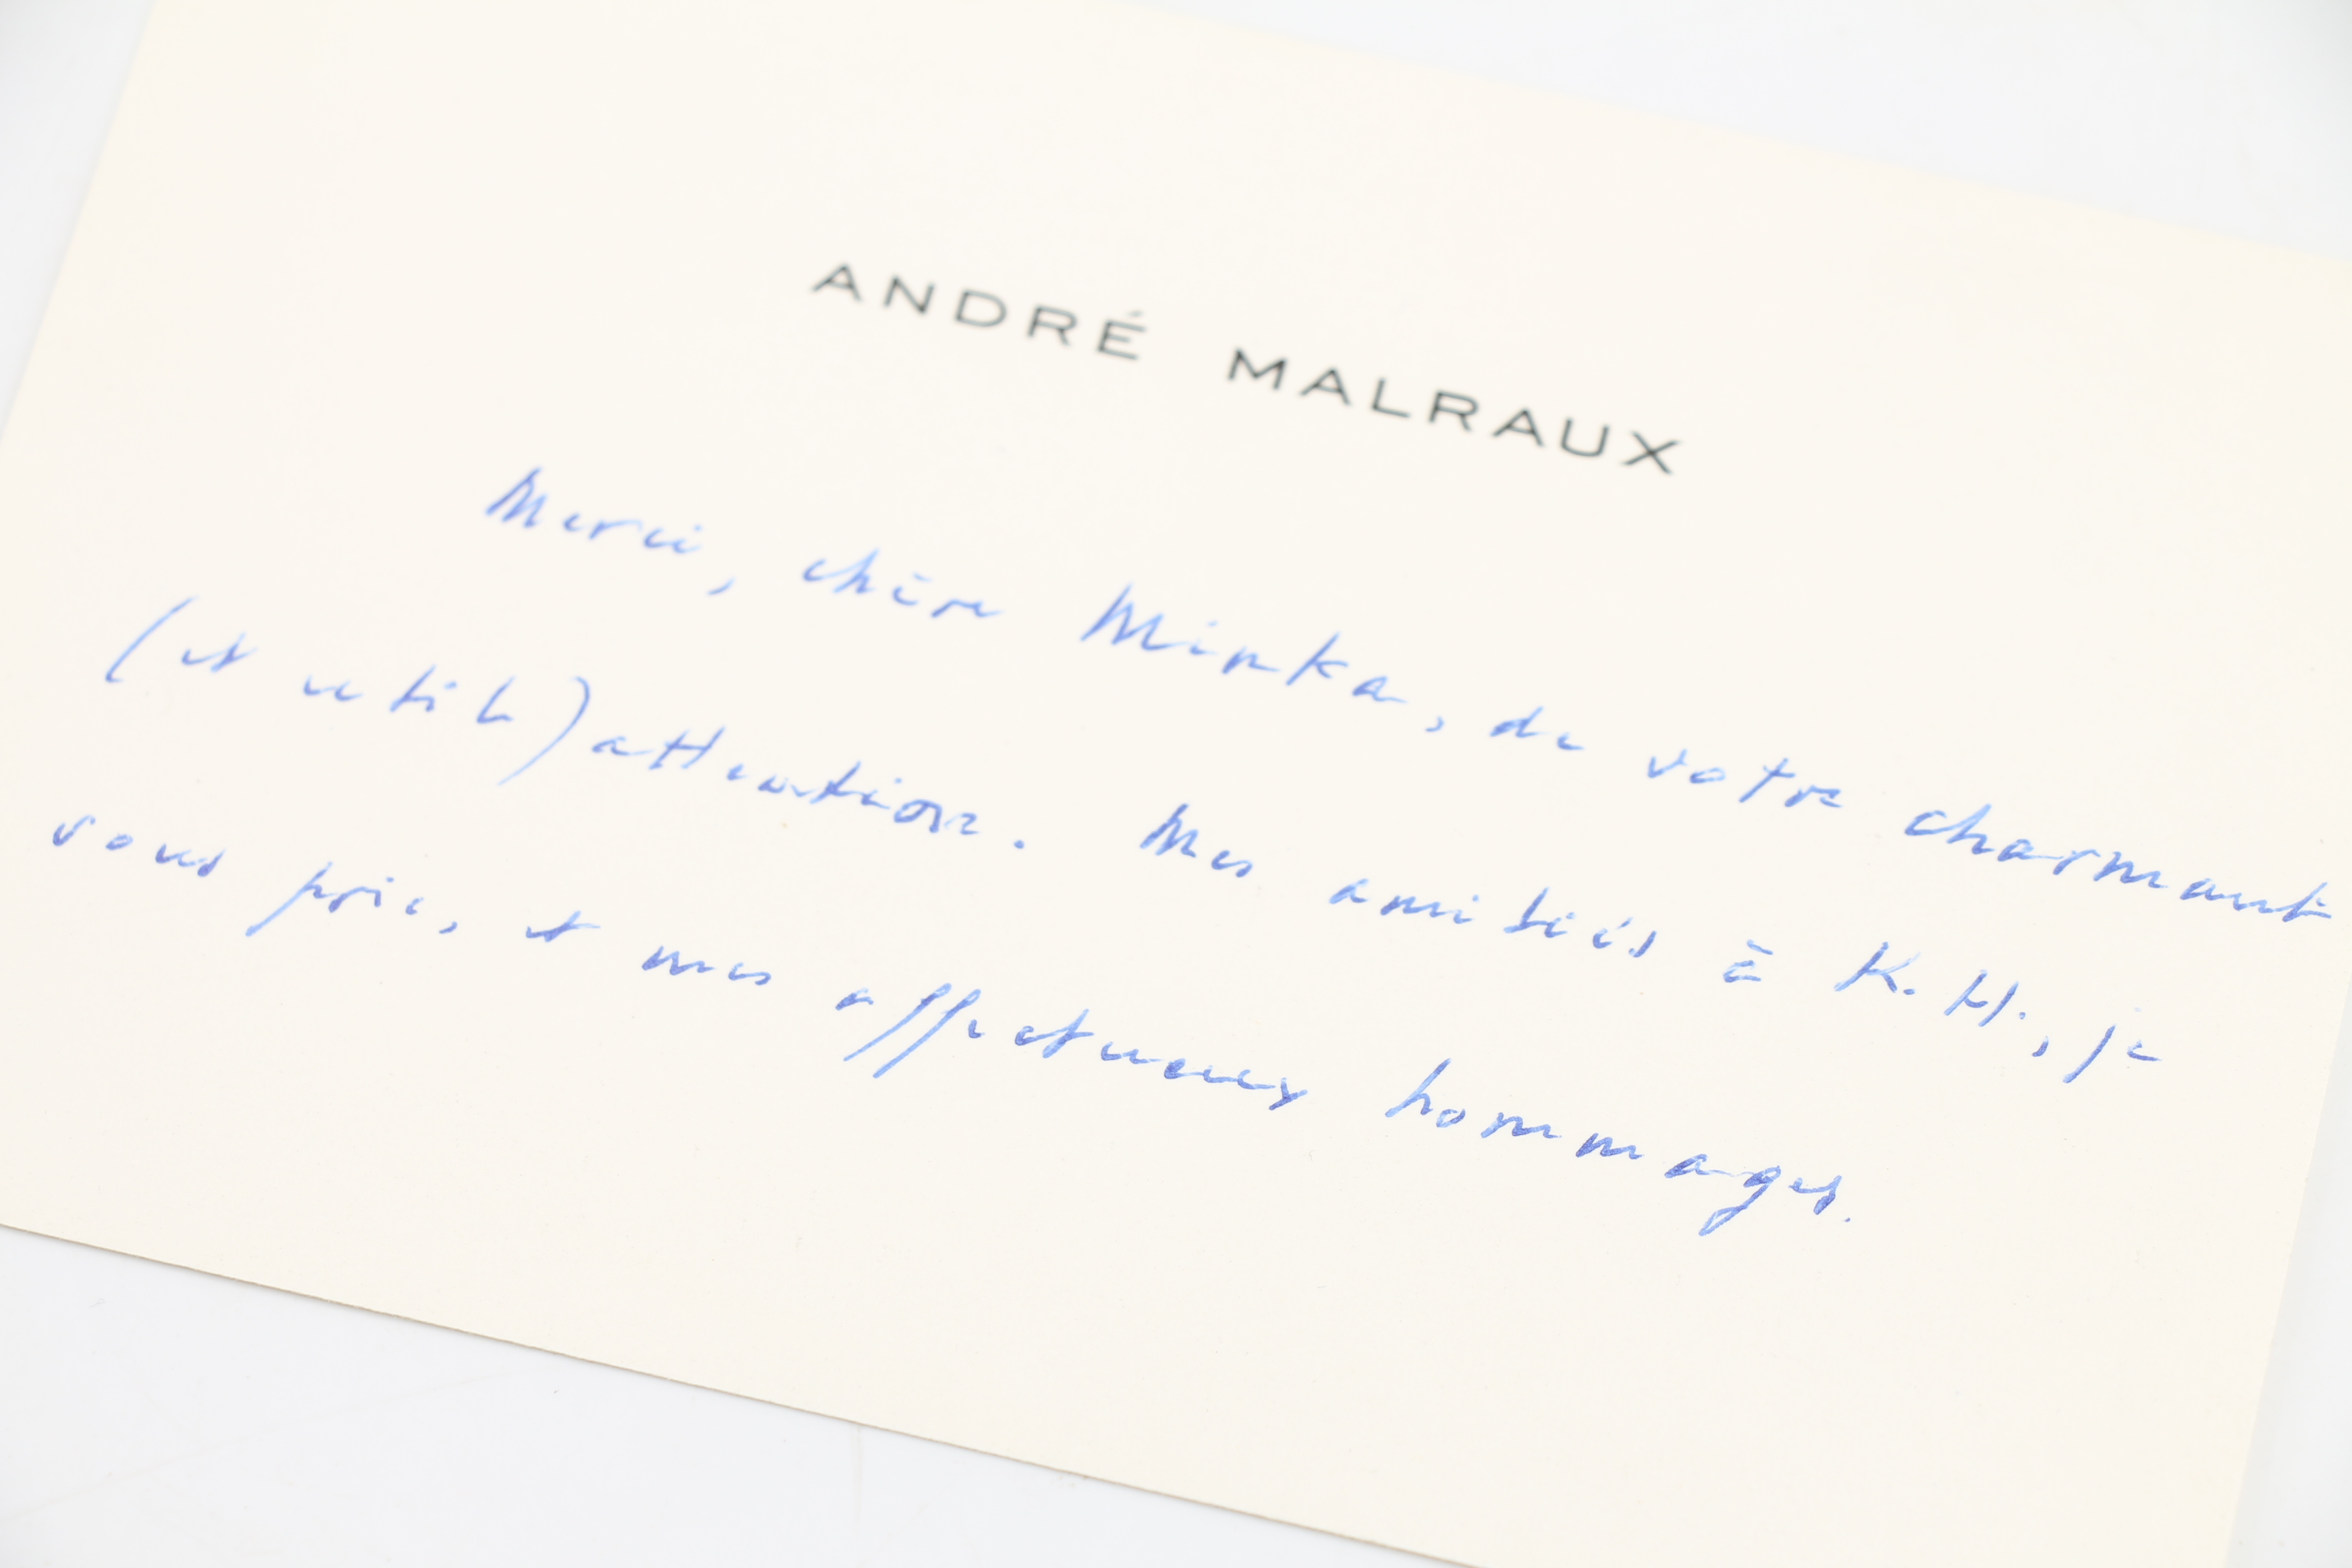 ANDRÉ MALRAUX
Merci, chère Minka, de votre charmante
(et utile) attention. Mes amitiés à K.H., je
vous prie, et mes affectueux hommages.